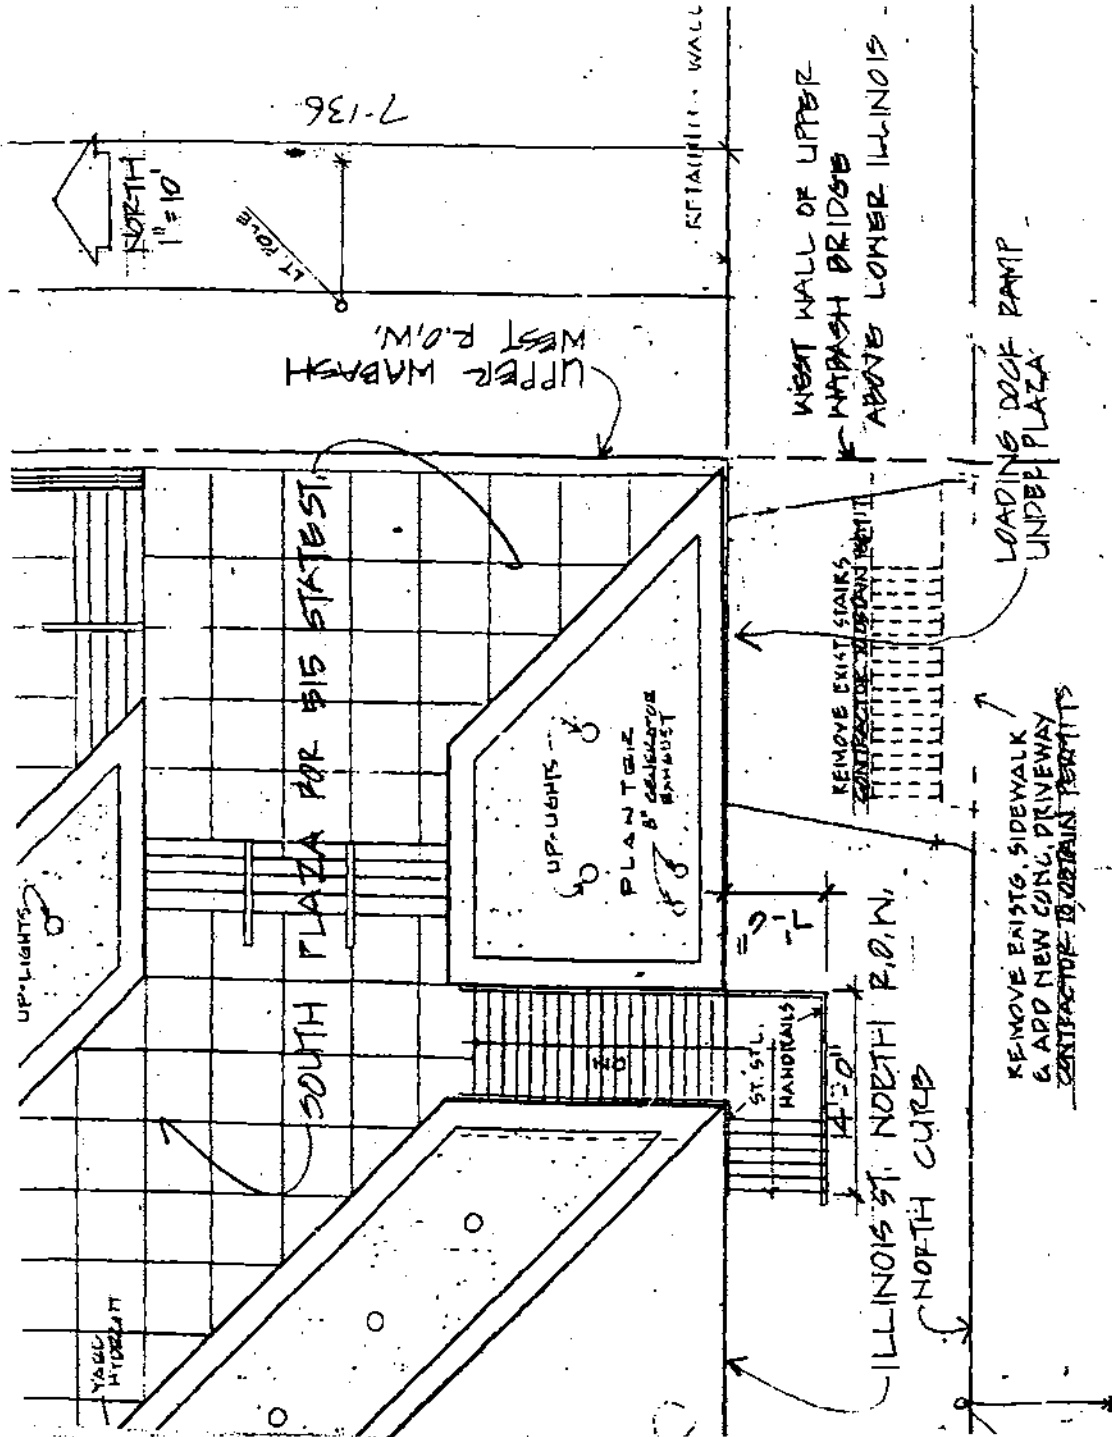 7-136
NORTH
1"=10'
LT. POLE
UPPER WABASH
WEST R.O.W.
RETAINING WALL
WEST WALL OF UPPER
WABASH BRIDGE
ABOVE LOWER ILLINOIS
LOADING DOCK RAMP
UNDER PLAZA
SOUTH PLAZA FOR 515 STATE ST.
UP-LIGHTS
UP-LIGHTS
PLANTER
8" GENERATOR
EXHAUST
REMOVE EXIST STAIRS
CONTRACTOR TO OBTAIN PERMIT
REMOVE EXISTG. SIDEWALK
& ADD NEW CONC. DRIVEWAY
CONTRACTOR TO OBTAIN PERMITS
ST. STL.
HANDRAILS
14'-0"
ILLINOIS ST. NORTH R.O.W.
NORTH CURB
YARD
HYDRANT